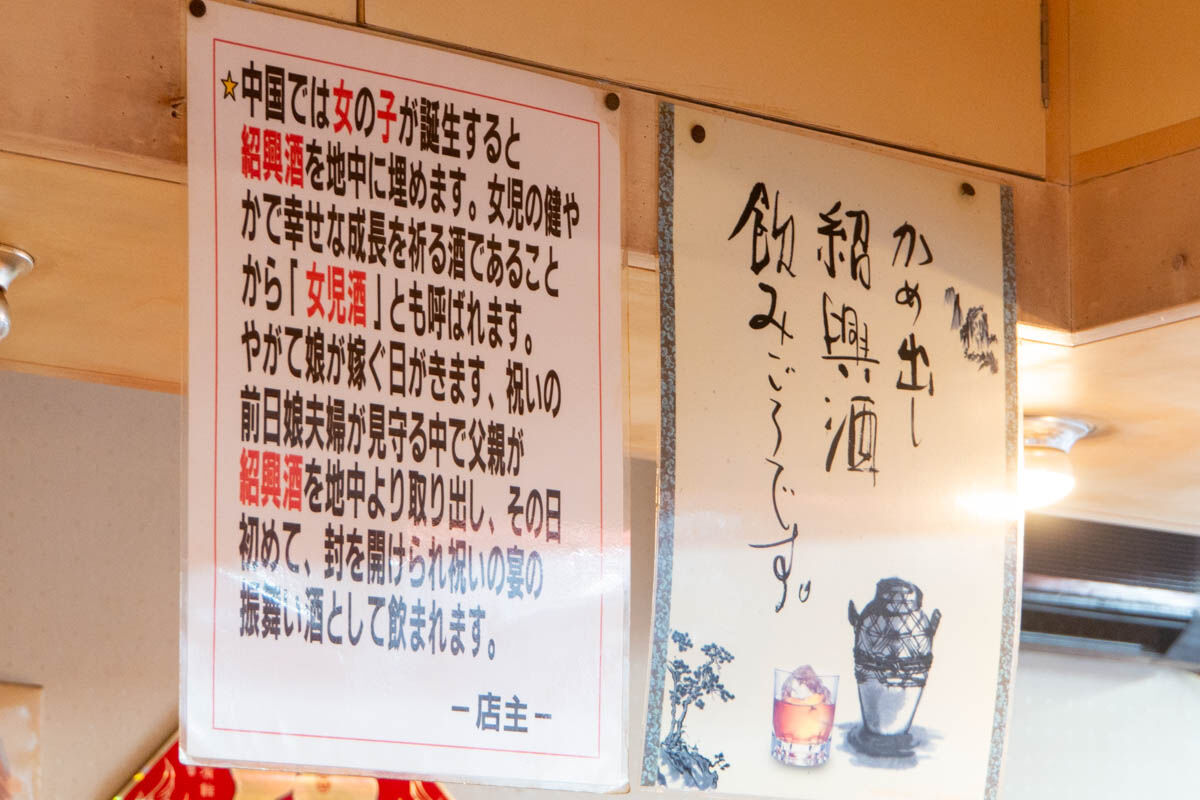 ★中国では女の子が誕生すると
紹興酒を地中に埋めます。女児の健や
かで幸せな成長を祈る酒であること
から「女児酒」とも呼ばれます。
やがて娘が嫁ぐ日がきます、祝いの
前日娘夫婦が見守る中で父親が
紹興酒を地中より取り出し、その日
初めて、封を開けられ祝いの宴の
振舞い酒として飲まれます。
－店主－
かめ出し
紹興酒
飲みごろです。